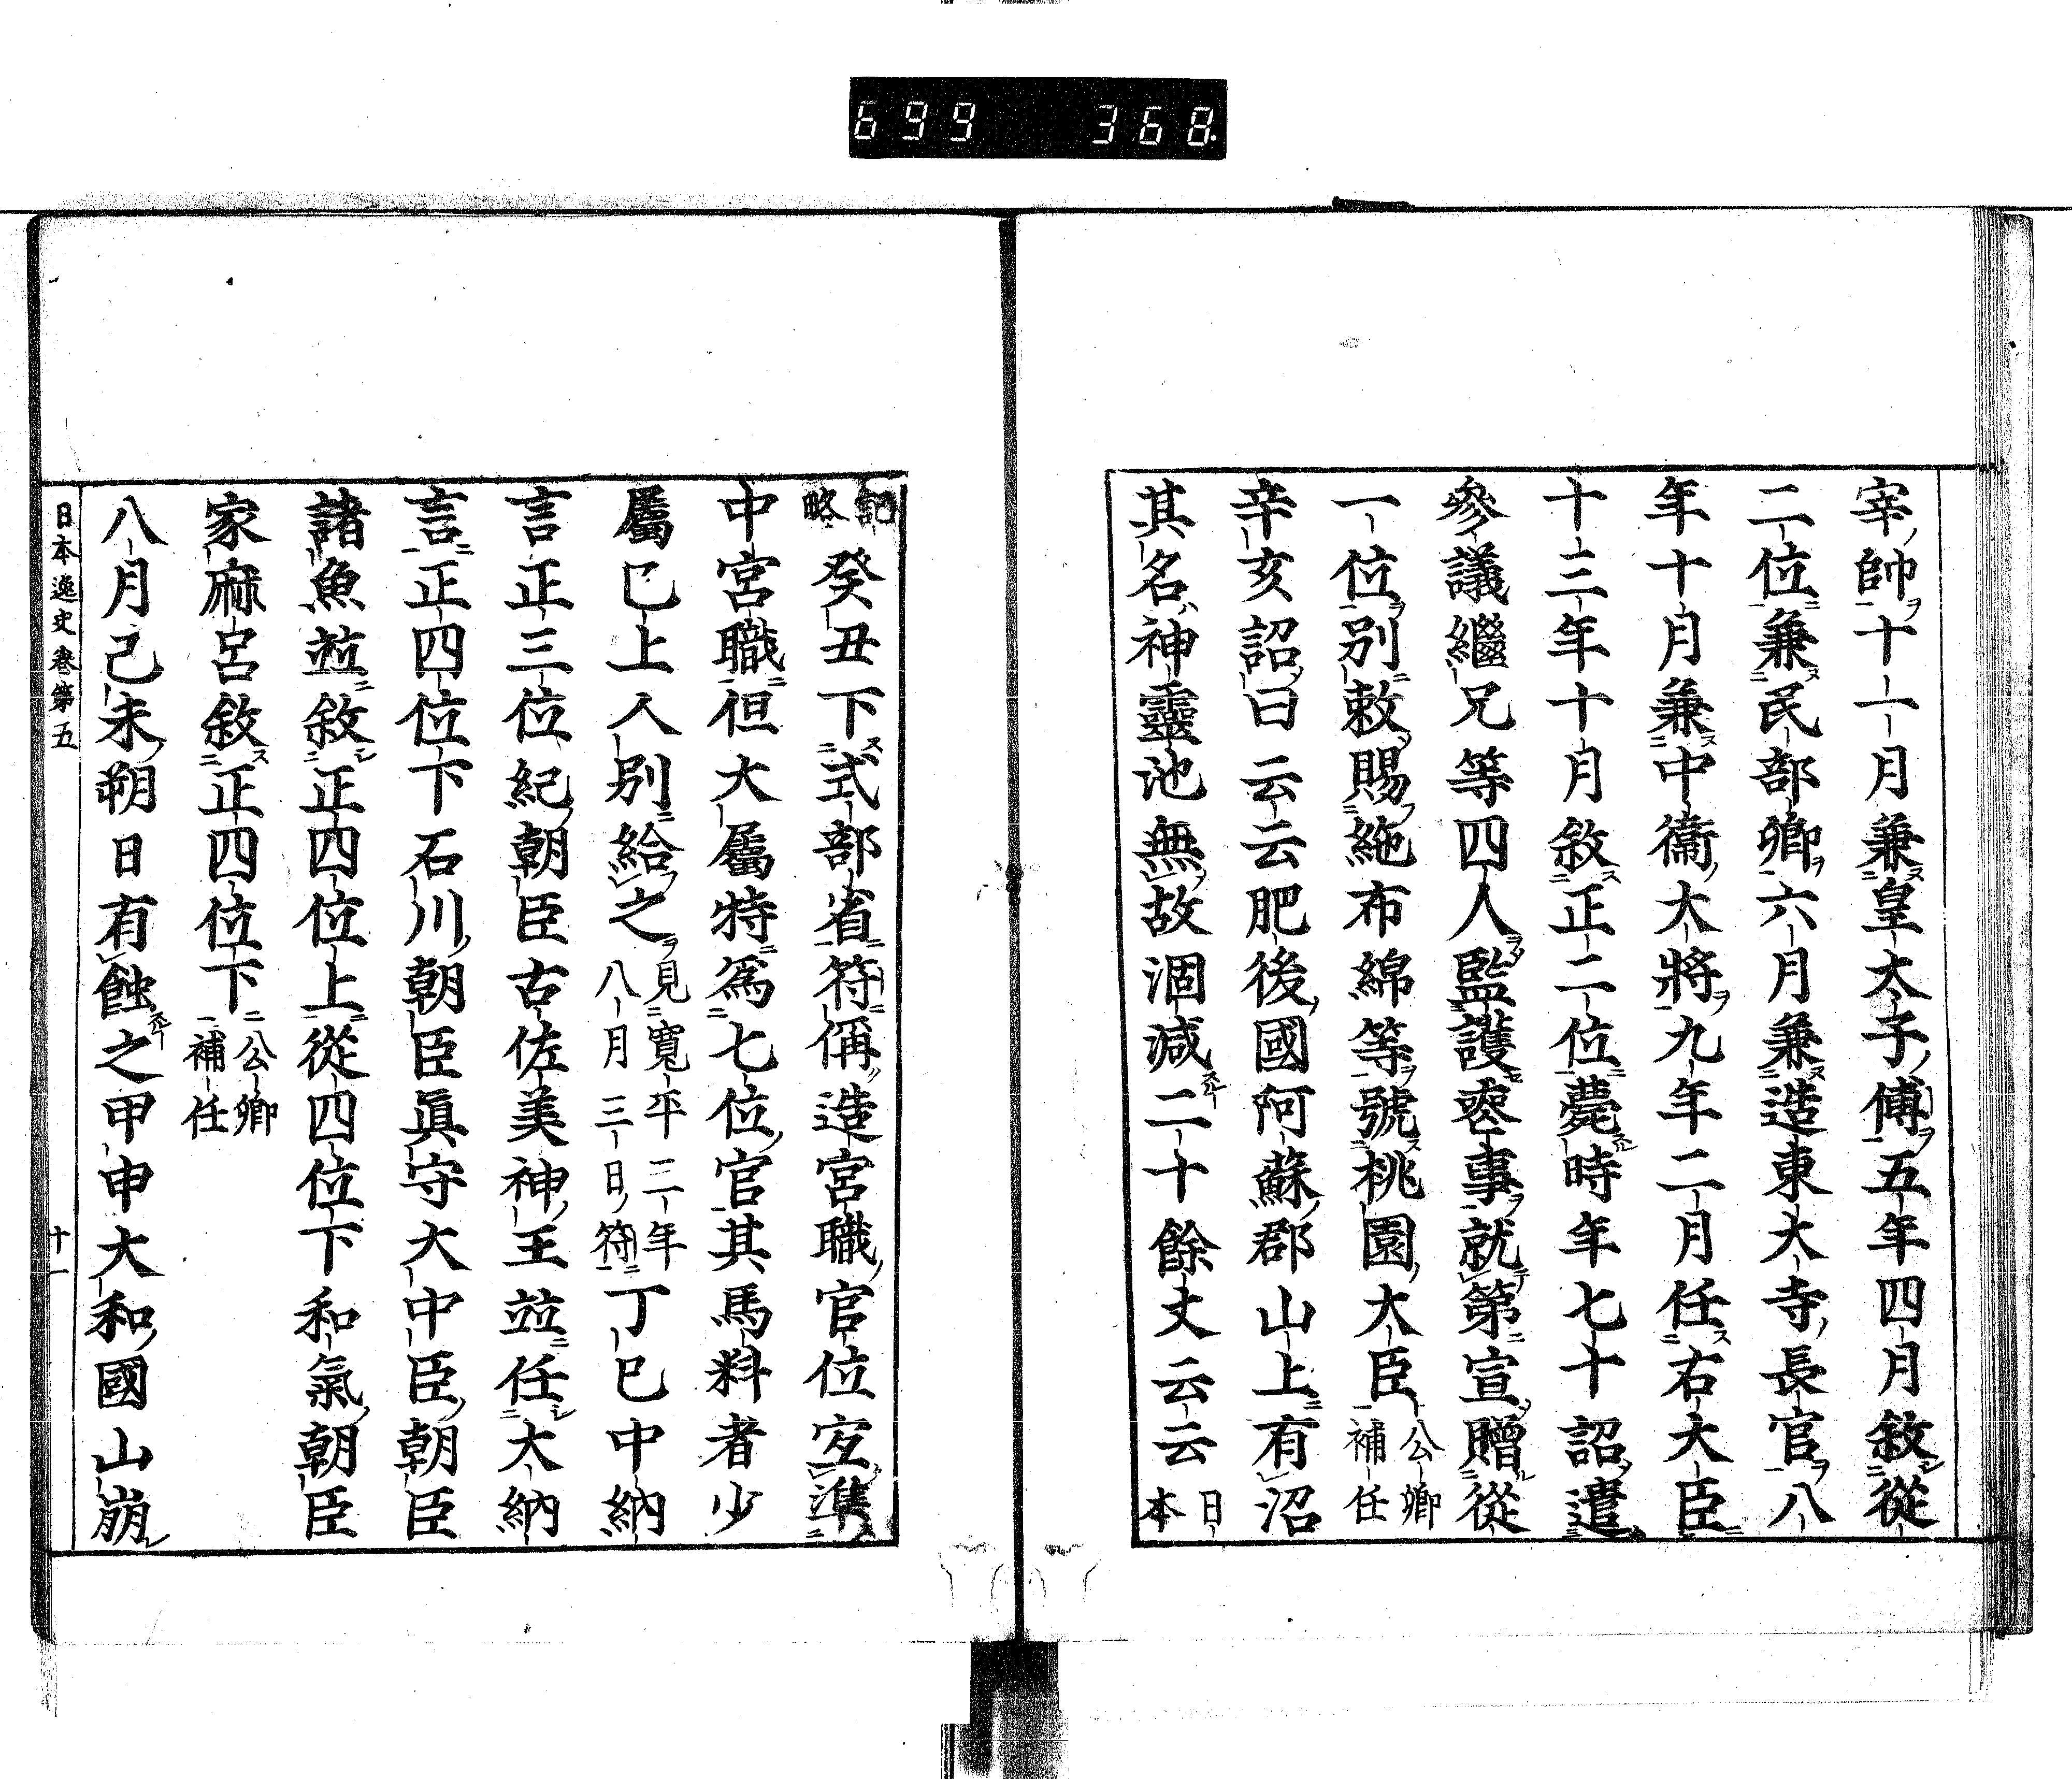 699 368
宰帥十一月兼皇太子傅五年四月敘從
二位兼民部卿六月兼造東大寺長官八
年十月兼中衞大將九年二月任右大臣
十三年十月敘正二位薨時年七十詔遣
參議繼兄等四人監護喪事就第宣贈從
一位別敕賜絁布綿等號桃園大臣公卿補任
辛亥詔曰云云肥後國阿蘇郡山上有沼
其名神靈池無故涸減二十餘丈云云日本
記略癸丑下式部省符偁造宮職官位宜準
中宮職但大屬特爲七位官其馬料者少
屬已上人別給之見寬平二年八月三日符丁巳中納
言正三位紀朝臣古佐美神王竝任大納
言正四位下石川朝臣眞守大中臣朝臣
諸魚竝敘正四位上從四位下和氣朝臣
家麻呂敘正四位下公卿補任
八月己未朔日有蝕之甲申大和國山崩
日本逸史卷第五 十一